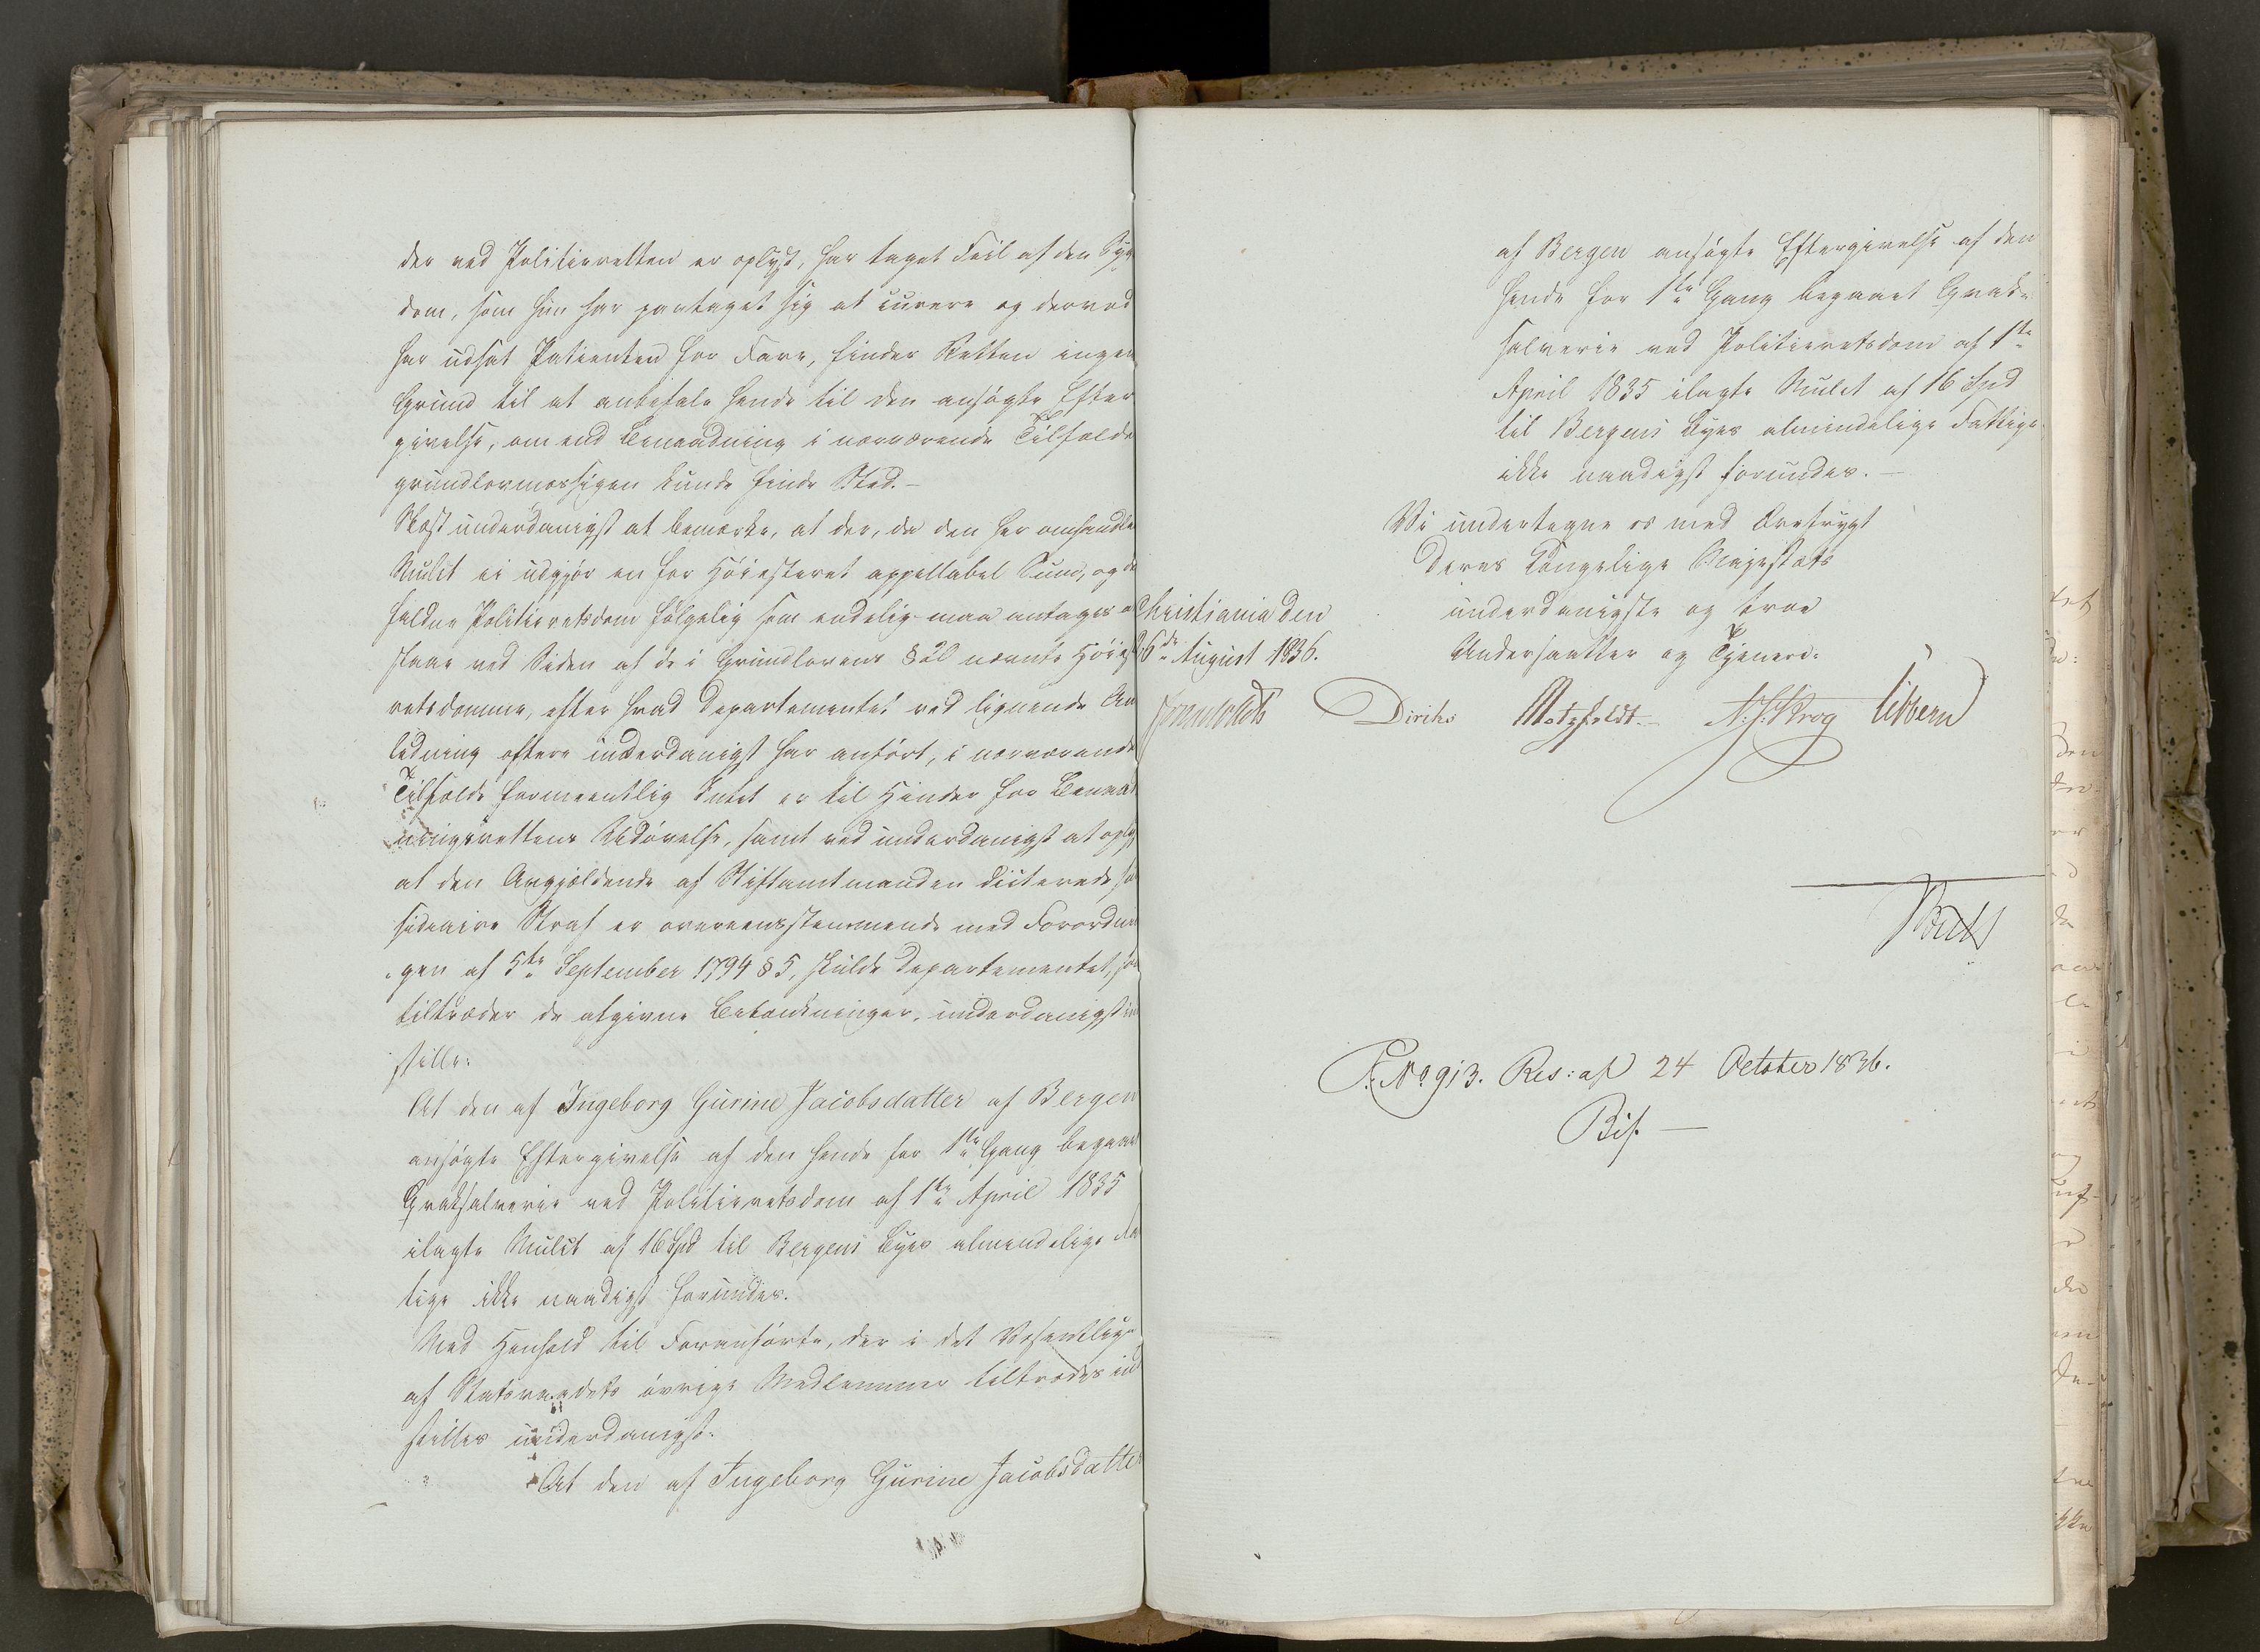 der ved Politieretten er oplyst, har taget Feil af den Syg
dom, som hun har paataget sig at curere og derved
har udsat Patienten for Fare, finder Retten ingen
Grund til at anbefale hende til den ansøgte Efter
givelse, om end Benaadning i nærværende Tilfælde
grundlovmæssigen kunde finde Sted.—
Næst underdanigst at bemærke, at der, da den her omhandle
Mulct ei udgjør en for Høiesteret appellabel Sum, og de
faldne Politieretsdom følgelig som endelig maa antages a
staae ved Siden af de i Grundlovens § 20 nævnte Høiest
retsdomme, efter hvad Departementet ved lignende An
ledning oftere underdanigst har anført, i nærværende
Tilfælde formeentlig Intet er til Hinder for Benaad
ningsrettens Udøvelse, samt ved underdanigst at oply
at den Angjældende af Stiftamtmanden dicterede su
sidiaire Straf er overeensstemmende med Forordni
gen af 5te September 1794 § 5, skulde Departementet, som
tiltræder de afgivne Betænkninger, underdanigst in
stille:
At den af Ingeborg Gurine Jacobsdatter af Bergen
ansøgte Eftergivelse af den hende for 1ste Gang begaaet
Qvaksalverie ved Politieretsdom af 1ste April 1835
ilagte Mulct af 16 Spd til Bergens Byes almindelige Fa
tige ikke naadigst forundes.
Med Henhold til Foranførte, der i det Væsentlige
af Statsraadets øvrige Medlemmer tiltrædes ind
stilles underdanigst:
At den af Ingeborg Gurine Jacobsdatter
af Bergen ansøgte Eftergivelse af den
hende for 1ste Gang begaaet Qvak-
salverie ved Politieretsdom af 1ste
April 1835 ilagte Mulct af 16 Spd
til Bergens Byes almindelige Fattige
ikke naadigst forundes.—
Vi undertegne os med Ærefrygt
Deres Kongelige Majestæts
underdanigste og troe
Undersaatter og Tjenere:
Christiania den
6de August 1836.
Diriks Motzfeldt. Krog Sibbern
P: No 913. Res: af 24 October 1836.
Bif. —